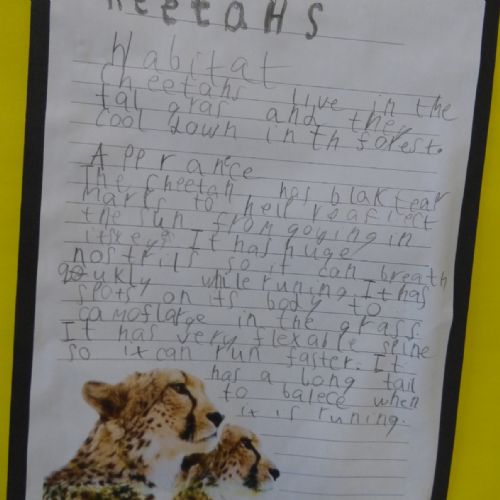 Keetahs
Habitat
Cheetahs live in the
tal gras and they
cool down in th forest.
Apprance
The cheetah has blak tear
marks to help reaflect
the sun from goying in
its eyes. It has huge
nostrils so it can breath
qoukly while runing. It has
spots on its body to
camoflarge in the grass.
It has very flexable spine
so it can run faster. It
has a long tail
to balece when
it is runing.